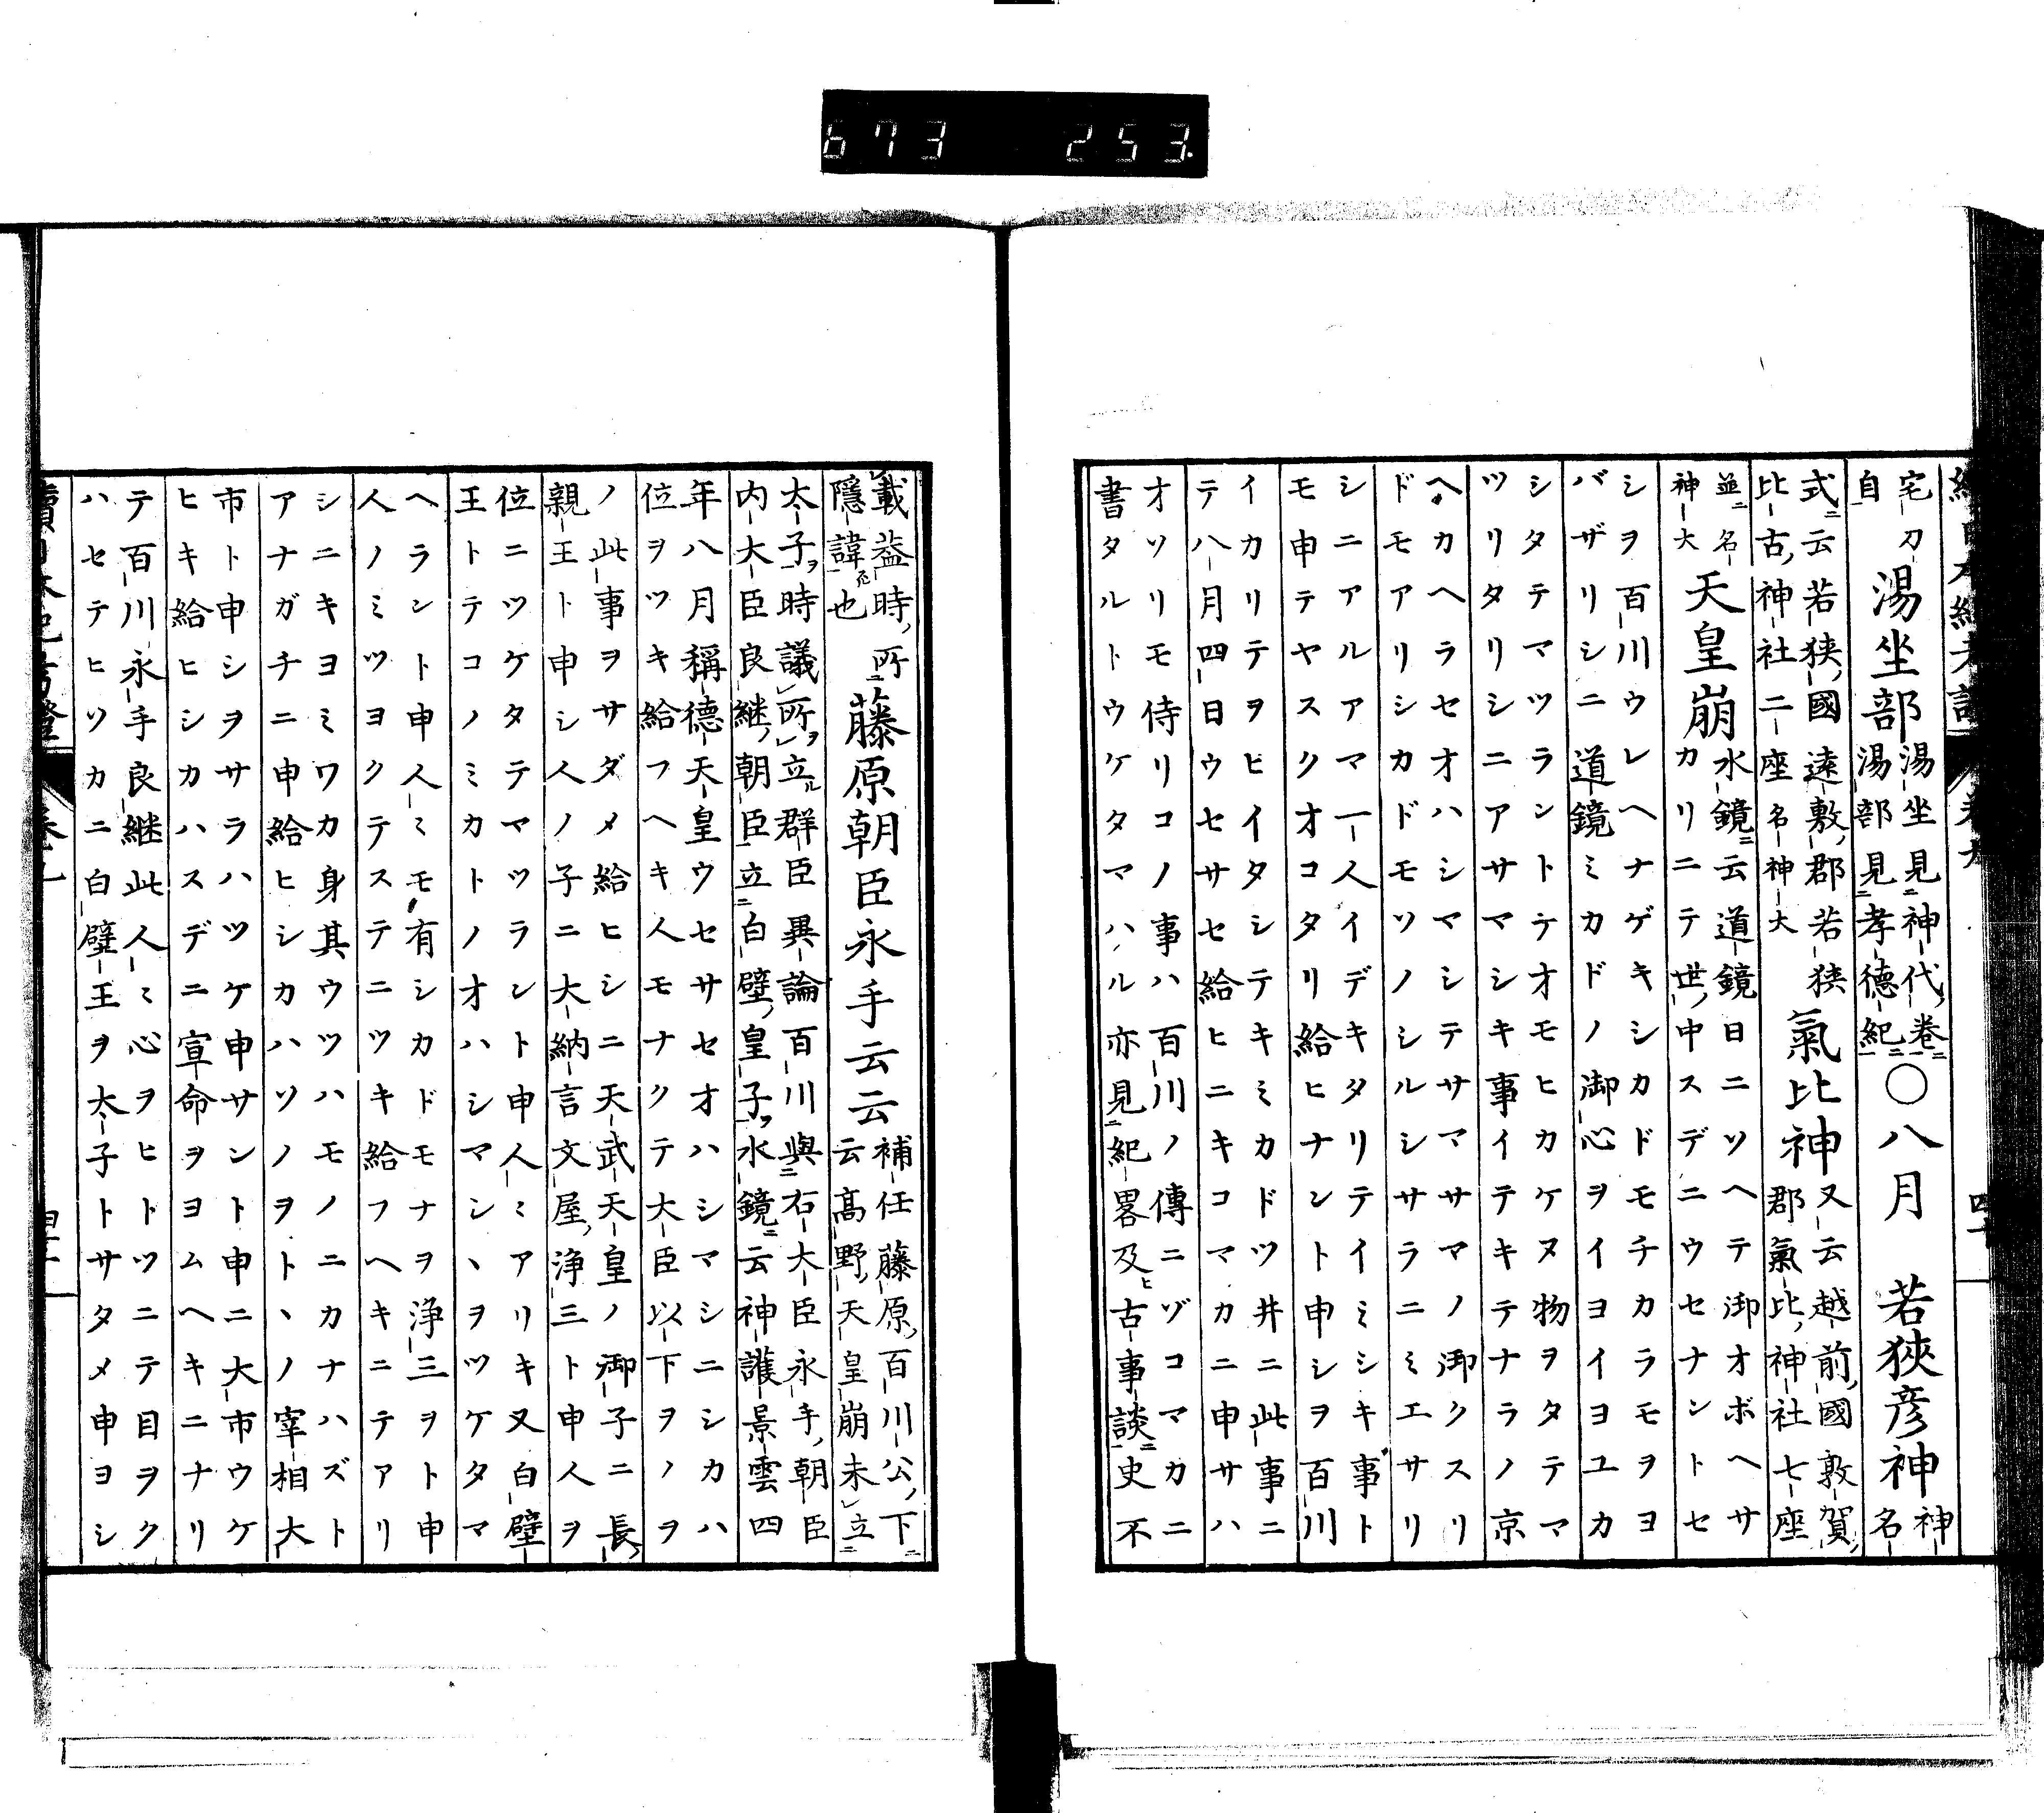 673 253
宅刀
自
湯坐部
湯坐見神代卷
湯部見孝德紀
○八月 若狹彦神
神名
式云若狹國遠敷郡若狹
比古神社二座名神大
氣比神
又云越前國敦賀
郡氣比神社七座
並名
神大
天皇崩
水鏡云道鏡日ニソヘテ御オボヘサ
カリニテ世中スデニウセナントセ
シヲ百川ウレヘナゲキシカドモチカラモヲヨ
バザリシニ道鏡ミカドノ御心ヲイヨイヨユカ
シタテマツラントテオモヒカケヌ物ヲタテマ
ツリタリシニアサマシキ事イテキテナラノ京
ヘカヘラセオハシマシテサマサマノ御クスリ
ドモアリシカドモソノシルシサラニミエサリ
シニアルアマ一人イデキタリテイミシキ事ト
モ申テヤスクオコタリ給ヒナント申シヲ百川
イカリテヲヒイタシテキミカドツ井ニ此事ニ
テ八月四日ウセサセ給ヒニキコマカニ申サハ
オソリモ侍リコノ事ハ百川ノ傳ニゾコマカニ
書タルトウケタマハル亦見紀畧及ヒ古事談史不
載葢時所
隱諱也
藤原朝臣永手云云
補任藤原百川公下
云高野天皇崩未立
太子ヲ時議所ヲ立ル群臣異論百川與右大臣永手朝臣
内大臣良継朝臣立白壁皇子ヲ水鏡云神護景雲四
年八月稱德天皇ウセサセオハシマシニシカハ
位ヲツキ給フヘキ人モナクテ大臣以下ヲノヲ
ノ此事ヲサダメ給ヒシニ天武天皇ノ御子ニ長
親王ト申シ人ノ子ニ大納言文屋浄三ト申人ヲ
位ニツケタテマツラント申人ミアリキ又白壁
王トテコノミカトノオハシマシヽヲツケタマ
ヘラント申人ミモ有シカドモナヲ浄三ヲト申
人ノミツヨクテステニツキ給フヘキニテアリ
シニキヨミワカ身其ウツハモノニカナハズト
アナガチニ申給ヒシカハソノヲトヽノ宰相大
市ト申シヲサラハツケ申サント申ニ大市ウケ
ヒキ給ヒシカハスデニ宣命ヲヨムヘキニナリ
テ百川永手良継此人ミ心ヲヒトツニテ目ヲク
ハセテヒソカニ白壁王ヲ太子トサタメ申ヨシ